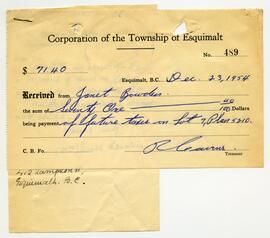 Corporation of the Township of Esquimalt
No. 489
$ 71.40
Esquimalt, B.C. Dec. 23, 1954
Received from Janet Bowden
the sum of Seventy One 40/100 Dollars
being payment of future taxes on Lot 7, Plan 5210.
C. B. Fo.
Treasurer
Esquimalt. B.C.